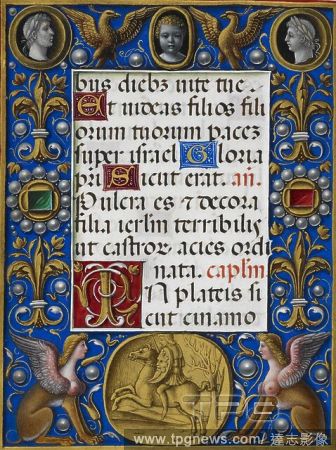 bus dieb₂ uite tue.
Et uideas filios fili
orum tuorum pacez
super israel Gloria
pri Sicut erat. añ.
Pulcra es ⁊ decora
filia ierlm terribilis
ut castror̃ acies ordi
nata. caplm
IN plateis si
cut cinamo
TPG
www.tpgnews.com/達志影像